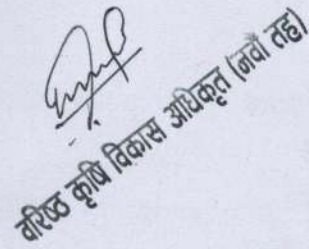 वरिष्ठ कृषि विकास अधिकृत (नवौं तह)